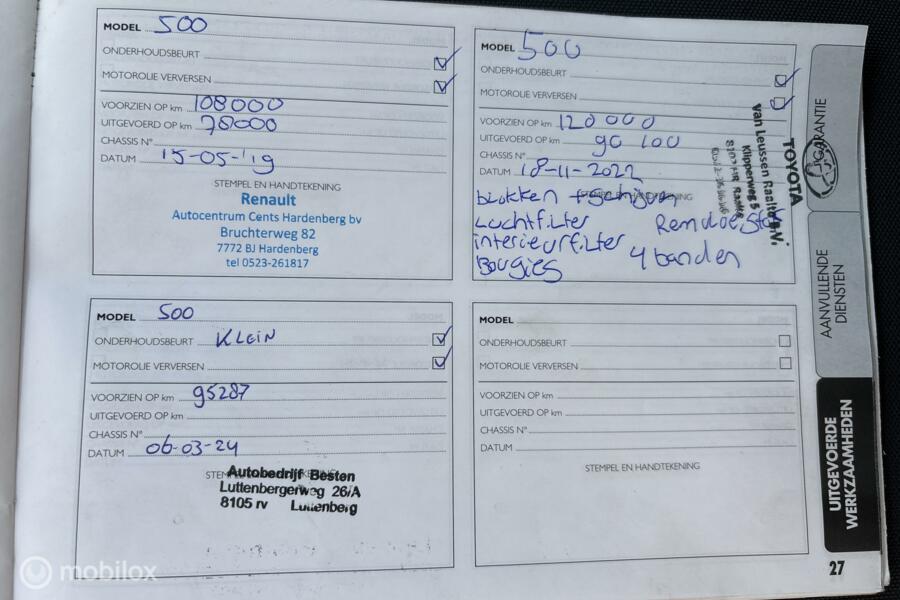 MODEL 500
ONDERHOUDSBEURT
MOTOROLIE VERVERSEN
VOORZIEN OP km 108000
UITGEVOERD OP km 78000
CHASSIS N°
DATUM 15-05-'19
STEMPEL EN HANDTEKENING
Renault
Autocentrum Cents Hardenberg bv
Bruchterweg 82
7772 BJ Hardenberg
tel 0523-261817
MODEL 500
ONDERHOUDSBEURT
MOTOROLIE VERVERSEN
VOORZIEN OP km 120000
UITGEVOERD OP km 90 100
CHASSIS N°
DATUM 18-11-2022
STEMPEL EN HANDTEKENING
blokken + schijven
Luchtfilter
interieurfilter
Bougies
4 banden
TOYOTA
van Leussen Raalte B.V.
Klipperweg 5
MODEL 500
ONDERHOUDSBEURT KLEIN
MOTOROLIE VERVERSEN
VOORZIEN OP km 95287
UITGEVOERD OP km
CHASSIS N°
DATUM 06-03-24
Autobedrijf Besten
Luttenbergerweg 26/A
8105 rv Luttenberg
MODEL
ONDERHOUDSBEURT
MOTOROLIE VERVERSEN
VOORZIEN OP km
UITGEVOERD OP km
CHASSIS N°
DATUM
STEMPEL EN HANDTEKENING
GARANTIE
AANVULLENDE
DIENSTEN
UITGEVOERDE
WERKZAAMHEDEN
27
mobilox